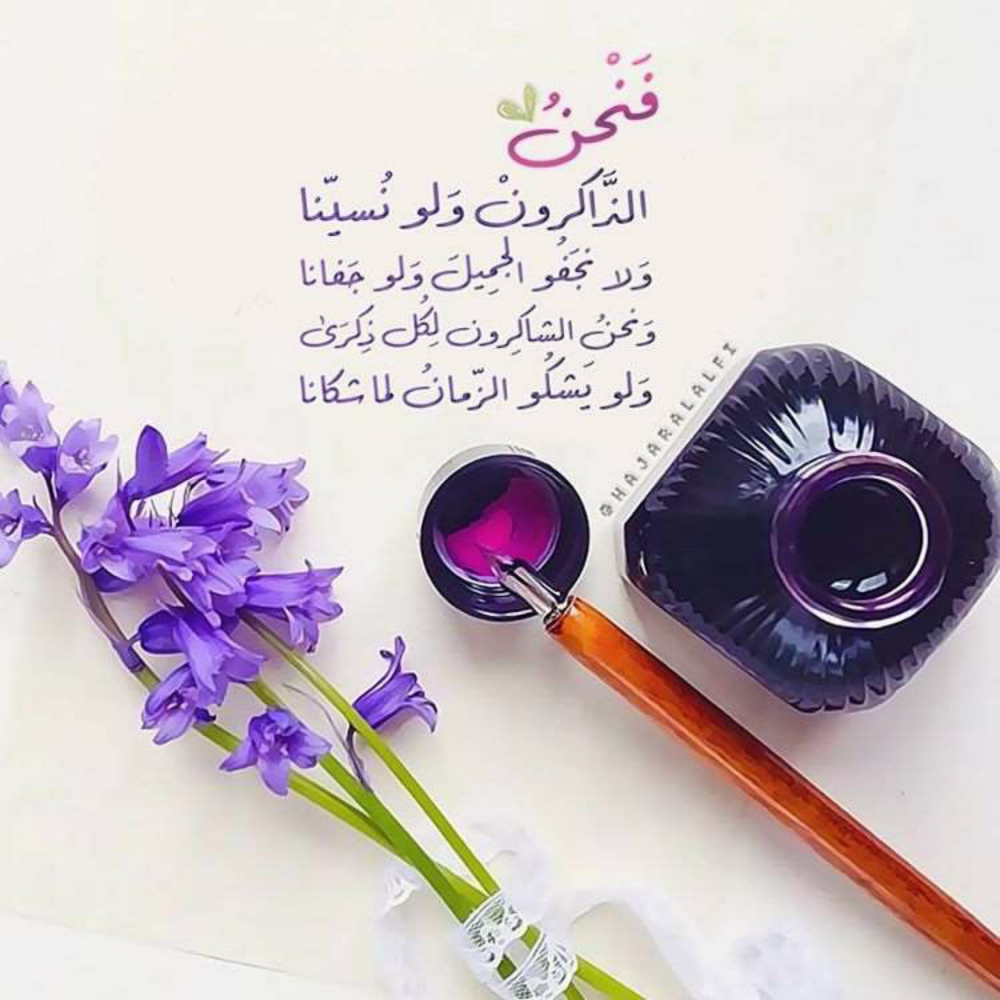 فَنَحْنُ
الذَّاكرونْ وَلو نُسيّنا
وَلا نَجَفُو الجَمِيلَ وَلو جَفانا
وَنحنُ الشاكِرون لِكُل ذِكرَىٰ
وَلو يَشكُو الزّمانُ لما شكانا
@HAJARALALFI